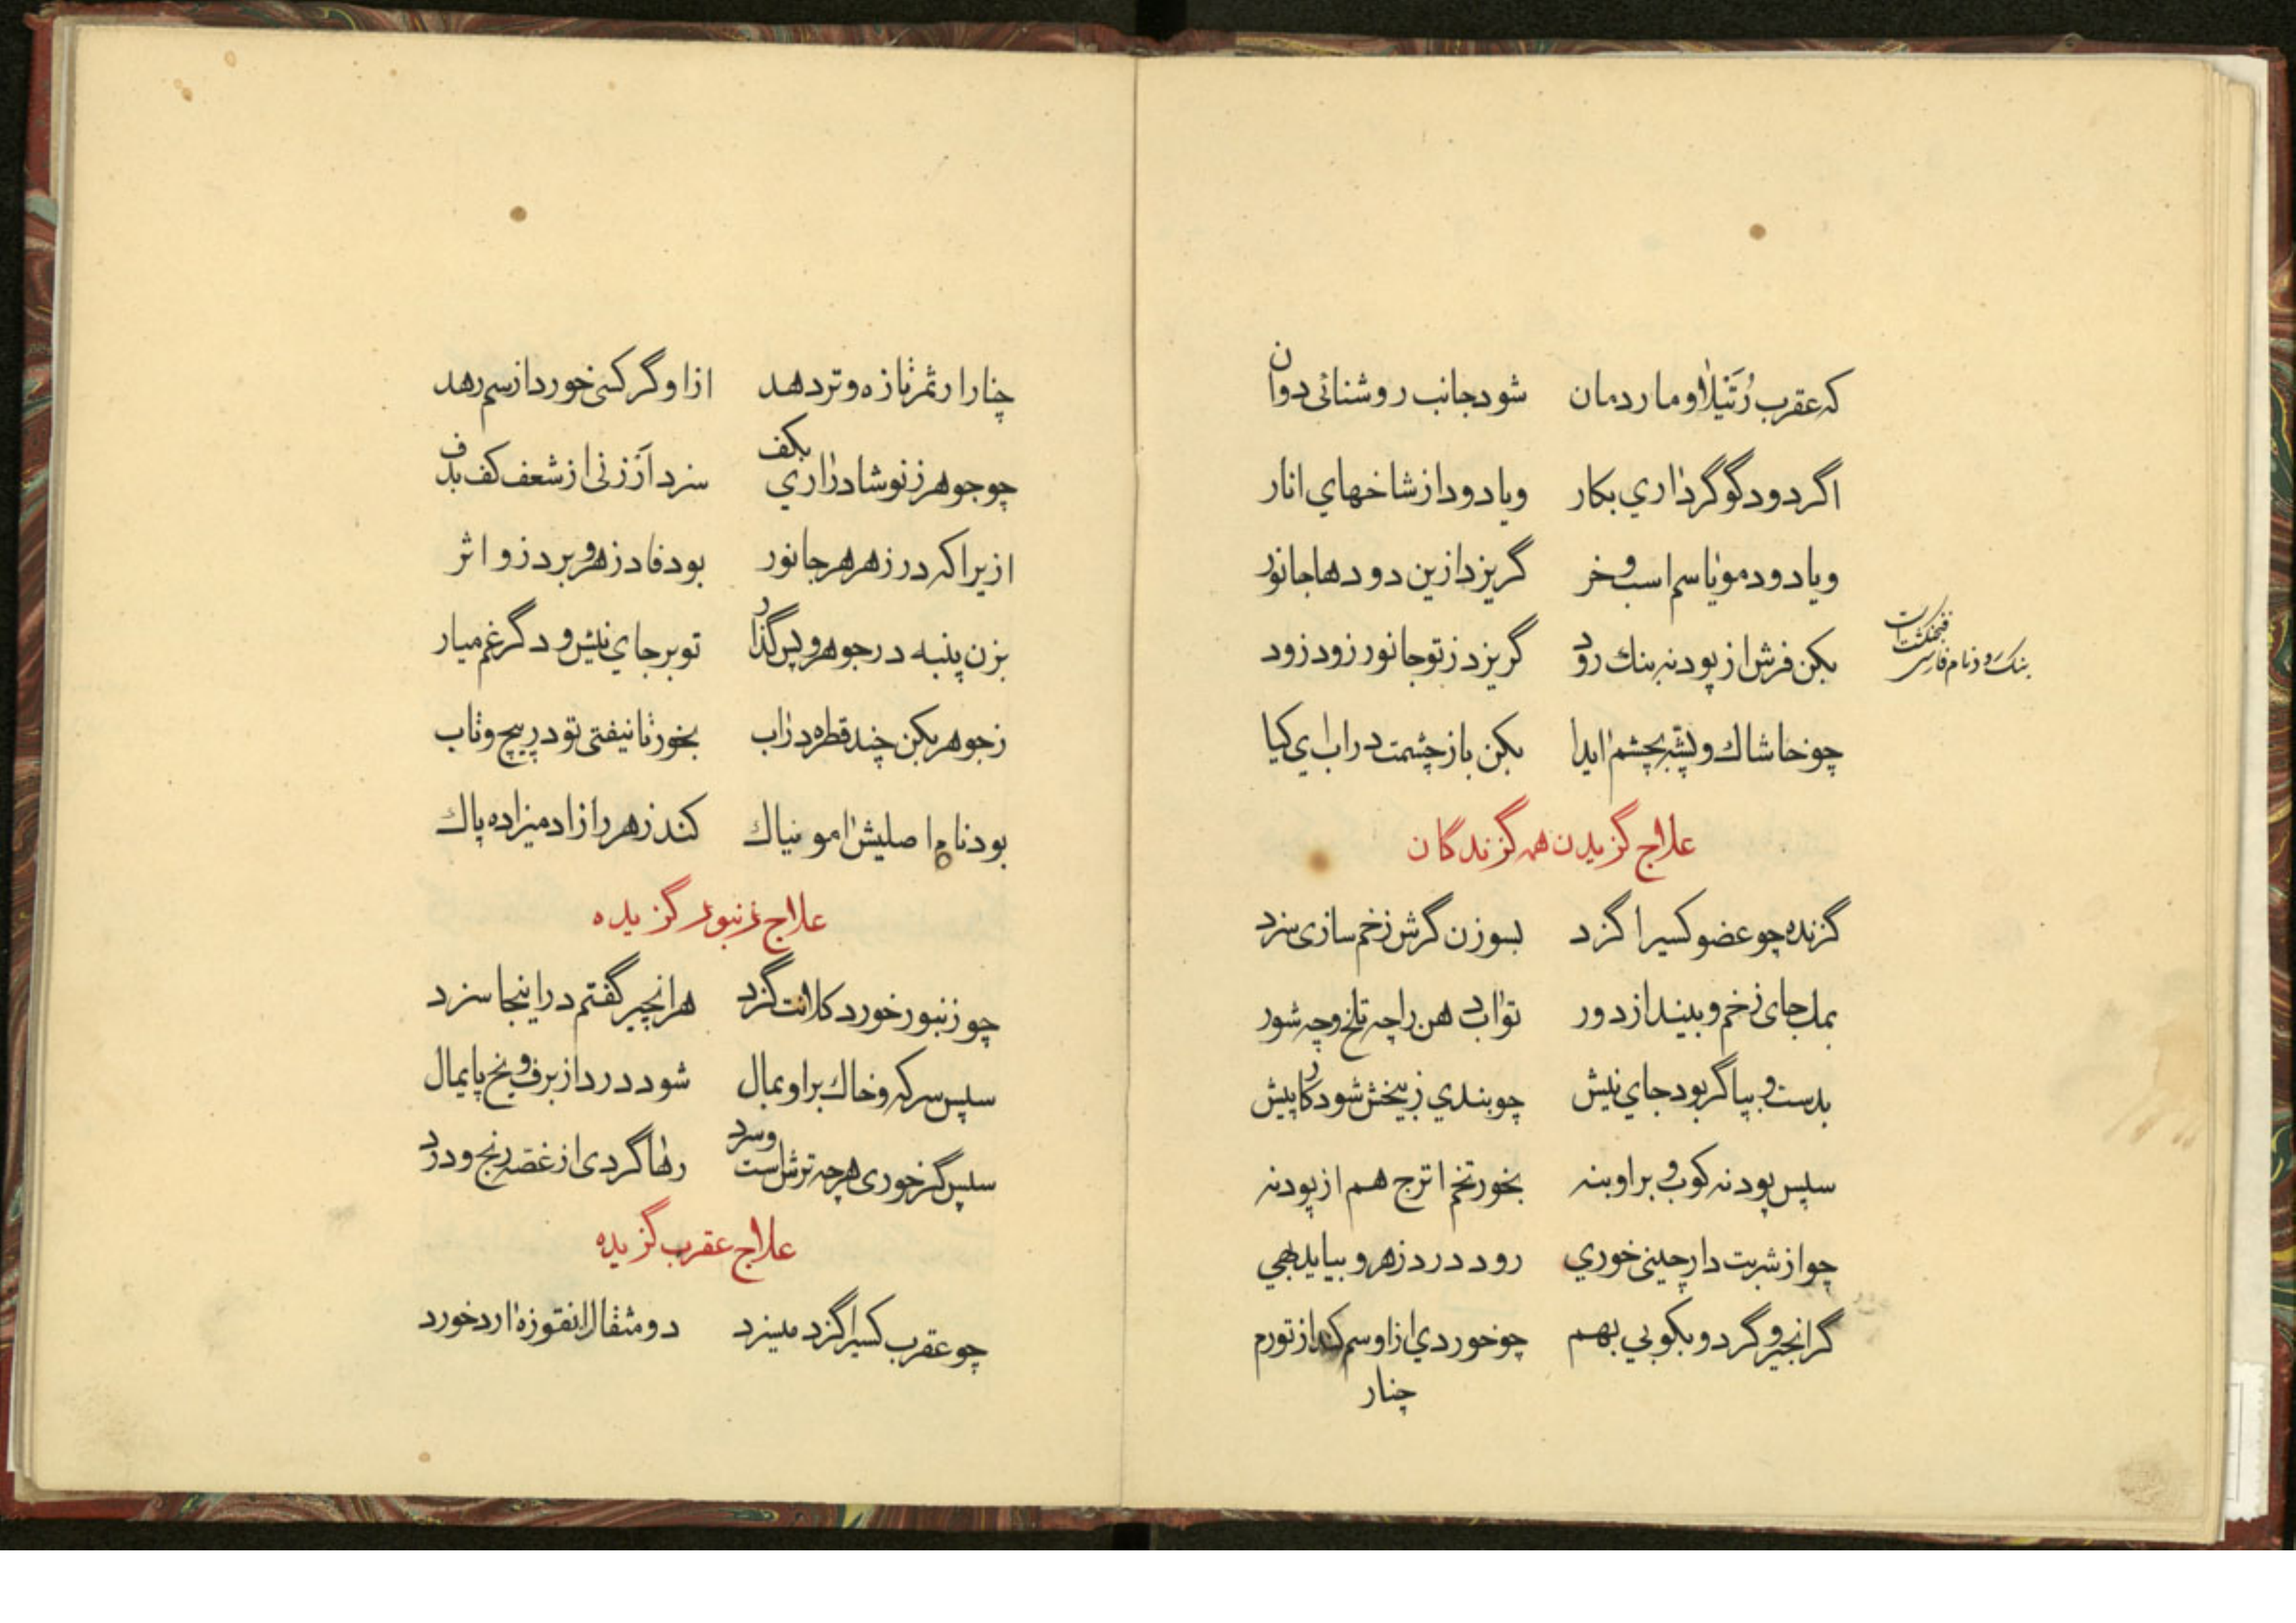 که عقرب رُتَیلا و مار دمان شود جانب روشنائی دوان
اگر دود گوگرد اری بکار ویا دود از شاخهاي انار
ویا دود مو یا سم اسب و خر گریزد ازین دودها جانور
بکن فرش از پودنه بنك رود گریزد ز تو جانور زود زود
بنك رود نام فارسی فنجنکشت است
چو خاشاك و پشه بچشم ایدا بکن باز چشمت در اب اي کیا
علاج گزیدن همه گزندگان
گزنده چو عضو کسیرا گزد بسوزن گرش زخم سازی سزد
بمك جای زخم و بینداز دور تو اب دهن را چه تلخ و چه شور
بدست و بپا گر بود جاي نیش چو بندي ز بیخش شود کار پیش
سپس پودنه کوب و بر او بنه بخور تخم اترج هم از پودنه
چو از شربت دارچینی خوري رود درد زهر و بیاید بهي
گر انجیر و گردو بکوبي بهم چو خوردي ازاو سم کند از تو رم
چنار
چنارار ثمر تازه و تر دهد ازاو گر کسی خورد از سم رهد
چو جوهر ز نوشادر اري بکف سزد ار زنی از شعف کف بدف
ازیرا که در زهر هر جانور بود فادزهر و برد زو اثر
بزن پنبه در جوهر و پس گذار تو بر جاي نیش و دگر غم میار
ز جوهر بکن چند قطره در اب بخور تا نیفتی تو در پیچ و تاب
بود نام اصلیش امونیاك کند زهر را ز ادمیزاده پاك
علاج زنبور گزیده
چو زنبور خورد کلانت گزد هر انچیز گفتم در اینجا سزد
سپس سرکه و خاك بر او بمال شود درد از برف و یخ پایمال
سپس گر خوری هرچه ترش است و سرد رها گردی از غصه رنج و درد
علاج عقرب گزیده
چو عقرب کسیرا گزد میسزد دو مثقال انقوزه ارد خورد